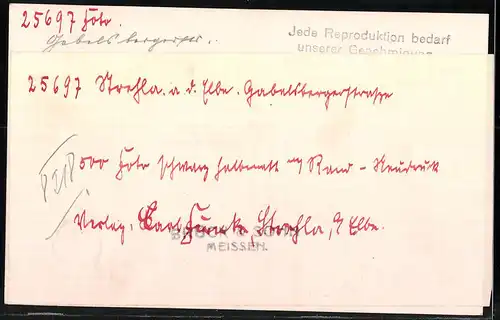 25697 Foto.
Gabelsbergerstr.
Jede Reproduktion bedarf
unserer Genehmigung
25697 Strehla. a. d. Elbe. Gabelsbergerstrasse
500 Foto schwarz halbmatt m/ Rand - Neudruck
Verlag. Karl Funke, Strehla, a/ Elbe.
BRÜCK & SOHN
MEISSEN.